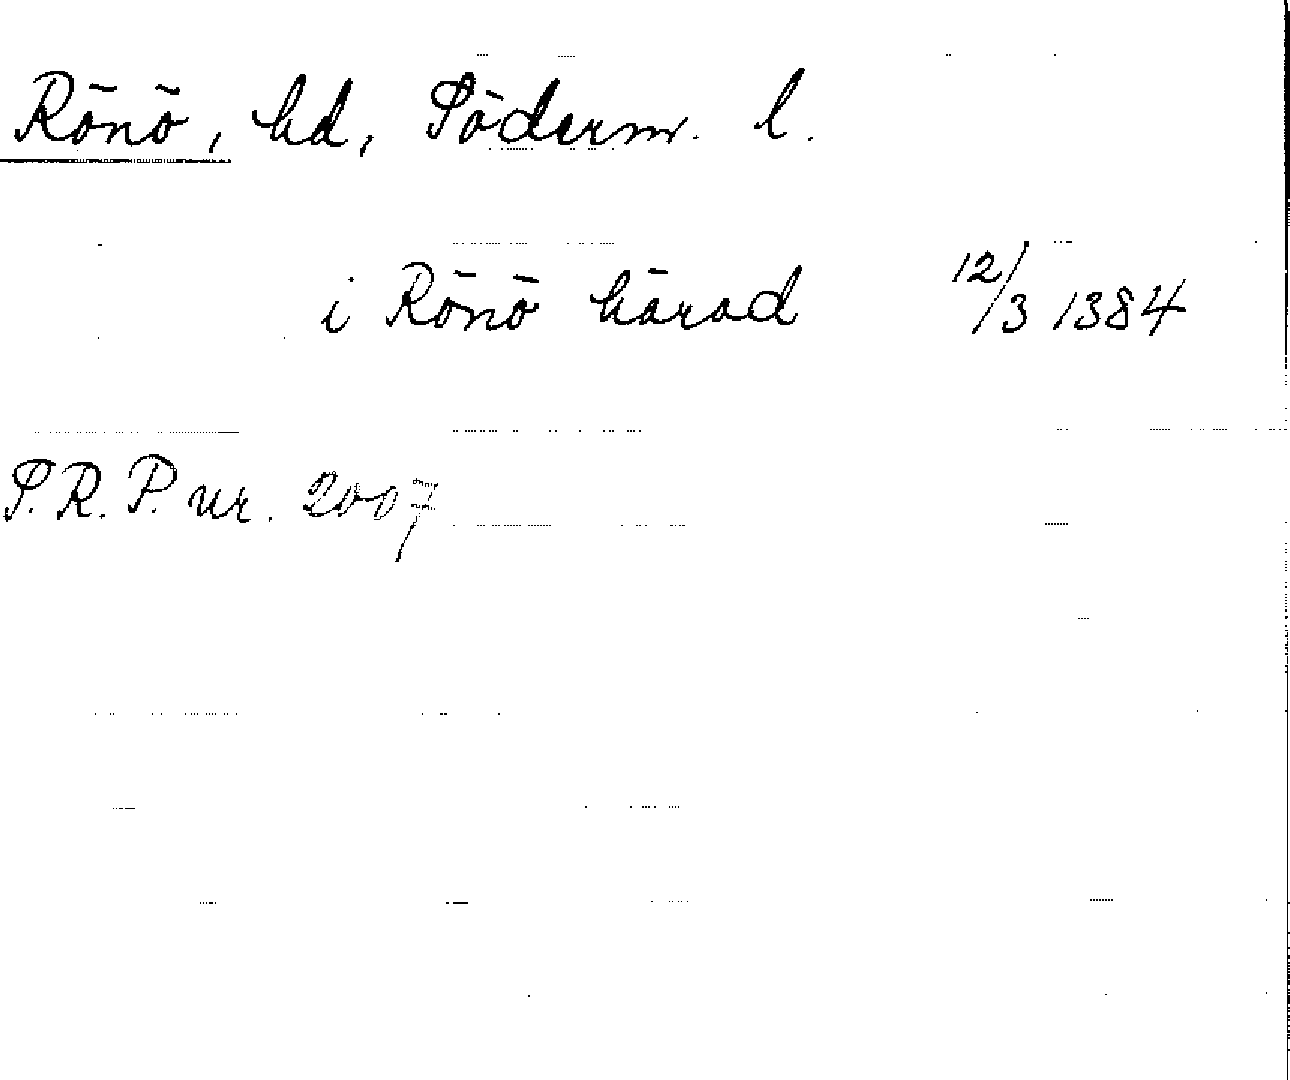 Rönö, hd, Söderm. l.
i Rönö härad 12/3 1384
S.R.P. nr. 2007